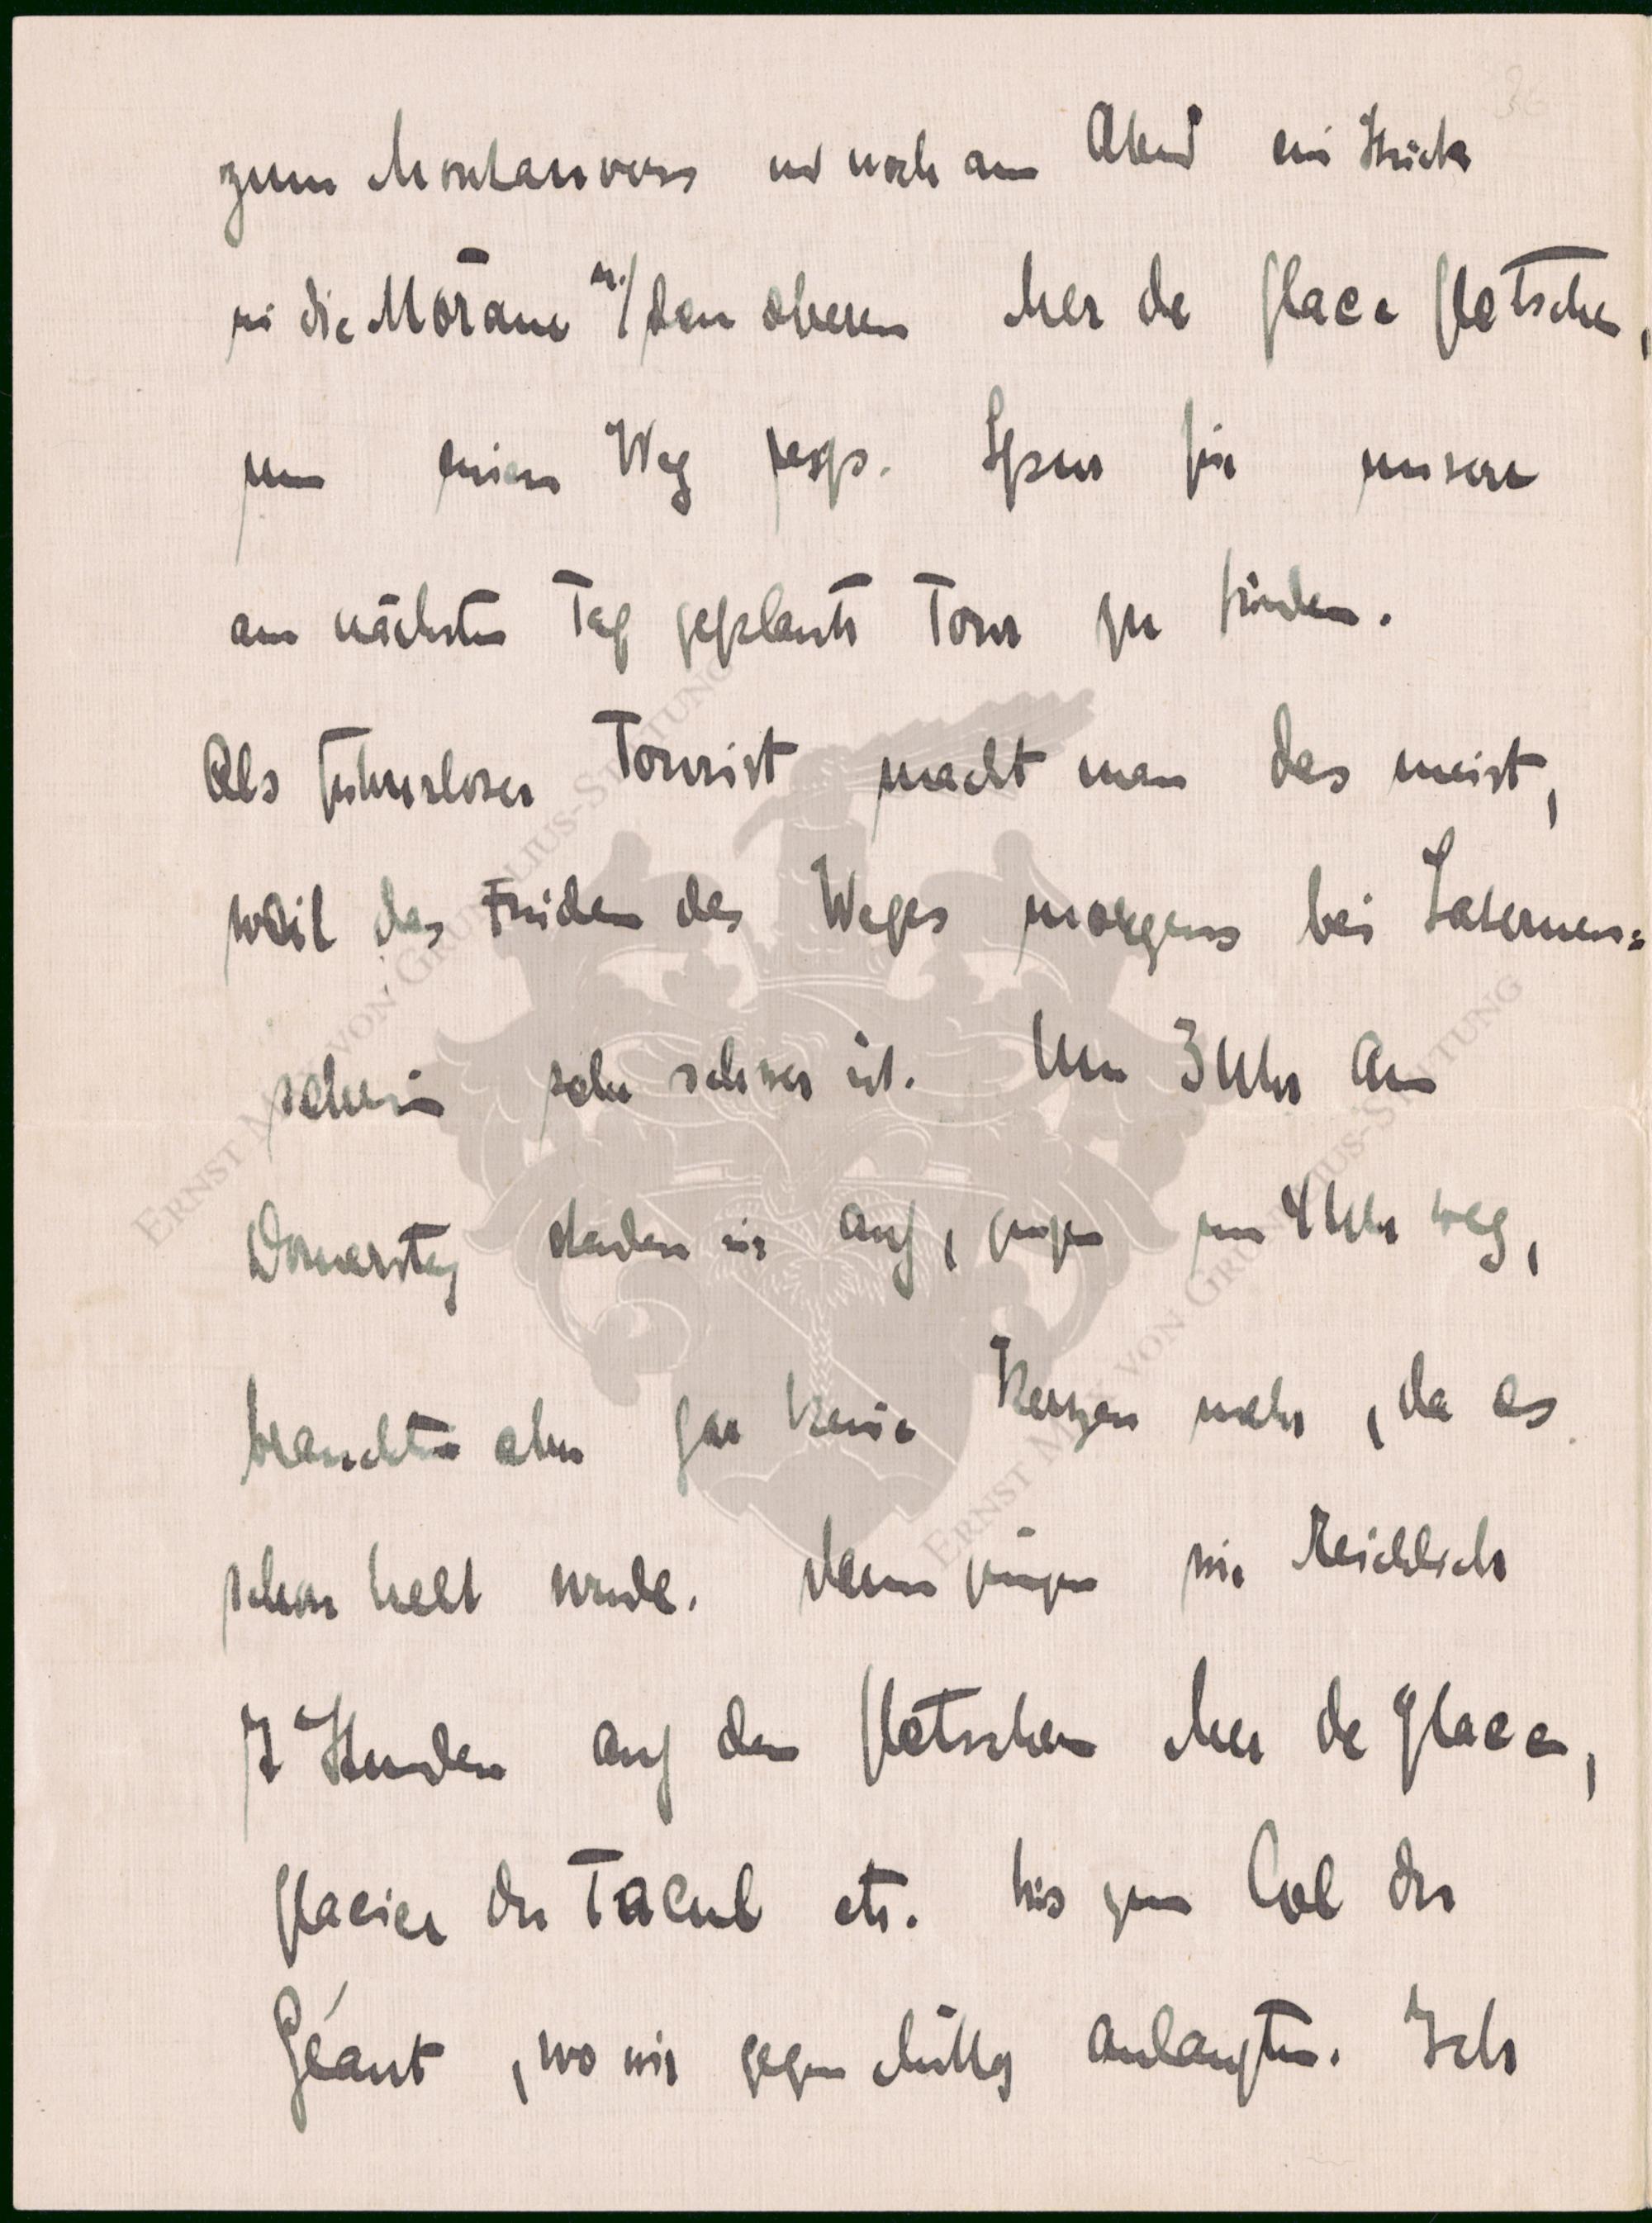 36
zum Montanvers und noch am Abend ein Stück
in die Moräne u./den oberen Mer de glace Gletscher,
um einen Weg resp. Spur für unsere
am nächsten Tag geplante Tour zu finden.
Als führerloser Tourist macht man das meist,
weil das Finden des Weges morgens bei Laternen=
schein sehr schwer ist. Um 3 Uhr am
Donnerstag standen wir auf, gingen um 4 Uhr weg,
brauchten aber gar keine Kerzen mehr, da es
schon hell wurde. Dann gingen wir reichlich
7 Stunden auf den Gletschern Mer de glace,
glacier du Tacul etc. bis zum Col du
Géant, wo wir gegen Mittag anlangten. Ich
ERNST MAX VON GRUNELIUS-STIFTUNG
ERNST MAX VON GRUNELIUS-STIFTUNG